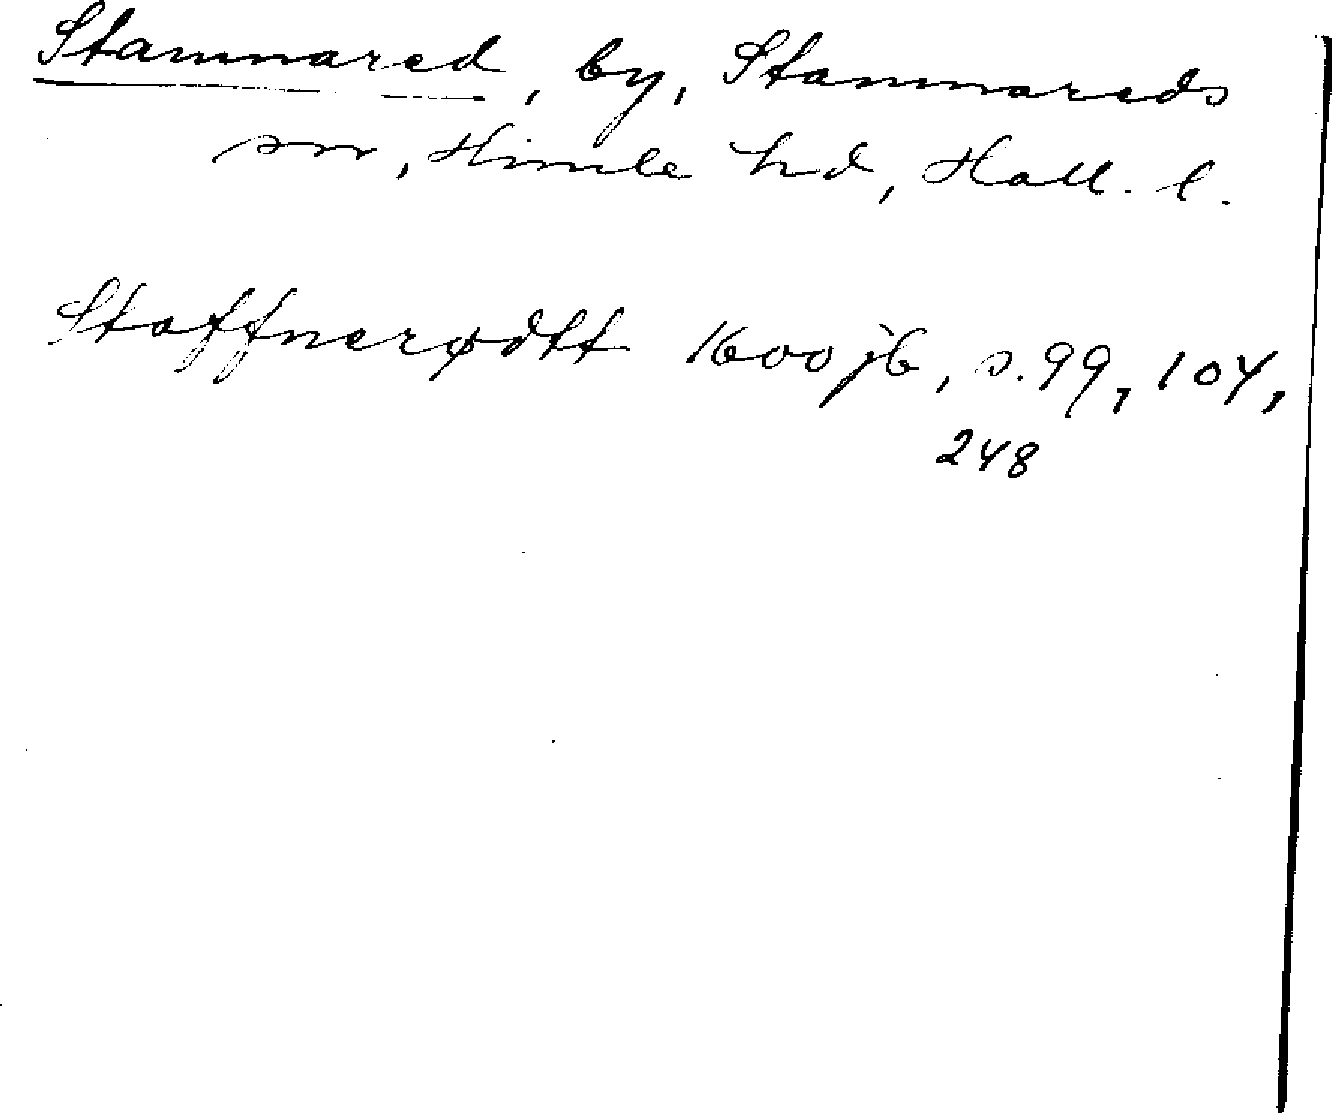 Stamnared, by, Stamnareds
sn, Himle hd, Hall. l.
Staffnerødtt 1600 jb, s. 99, 104,
248